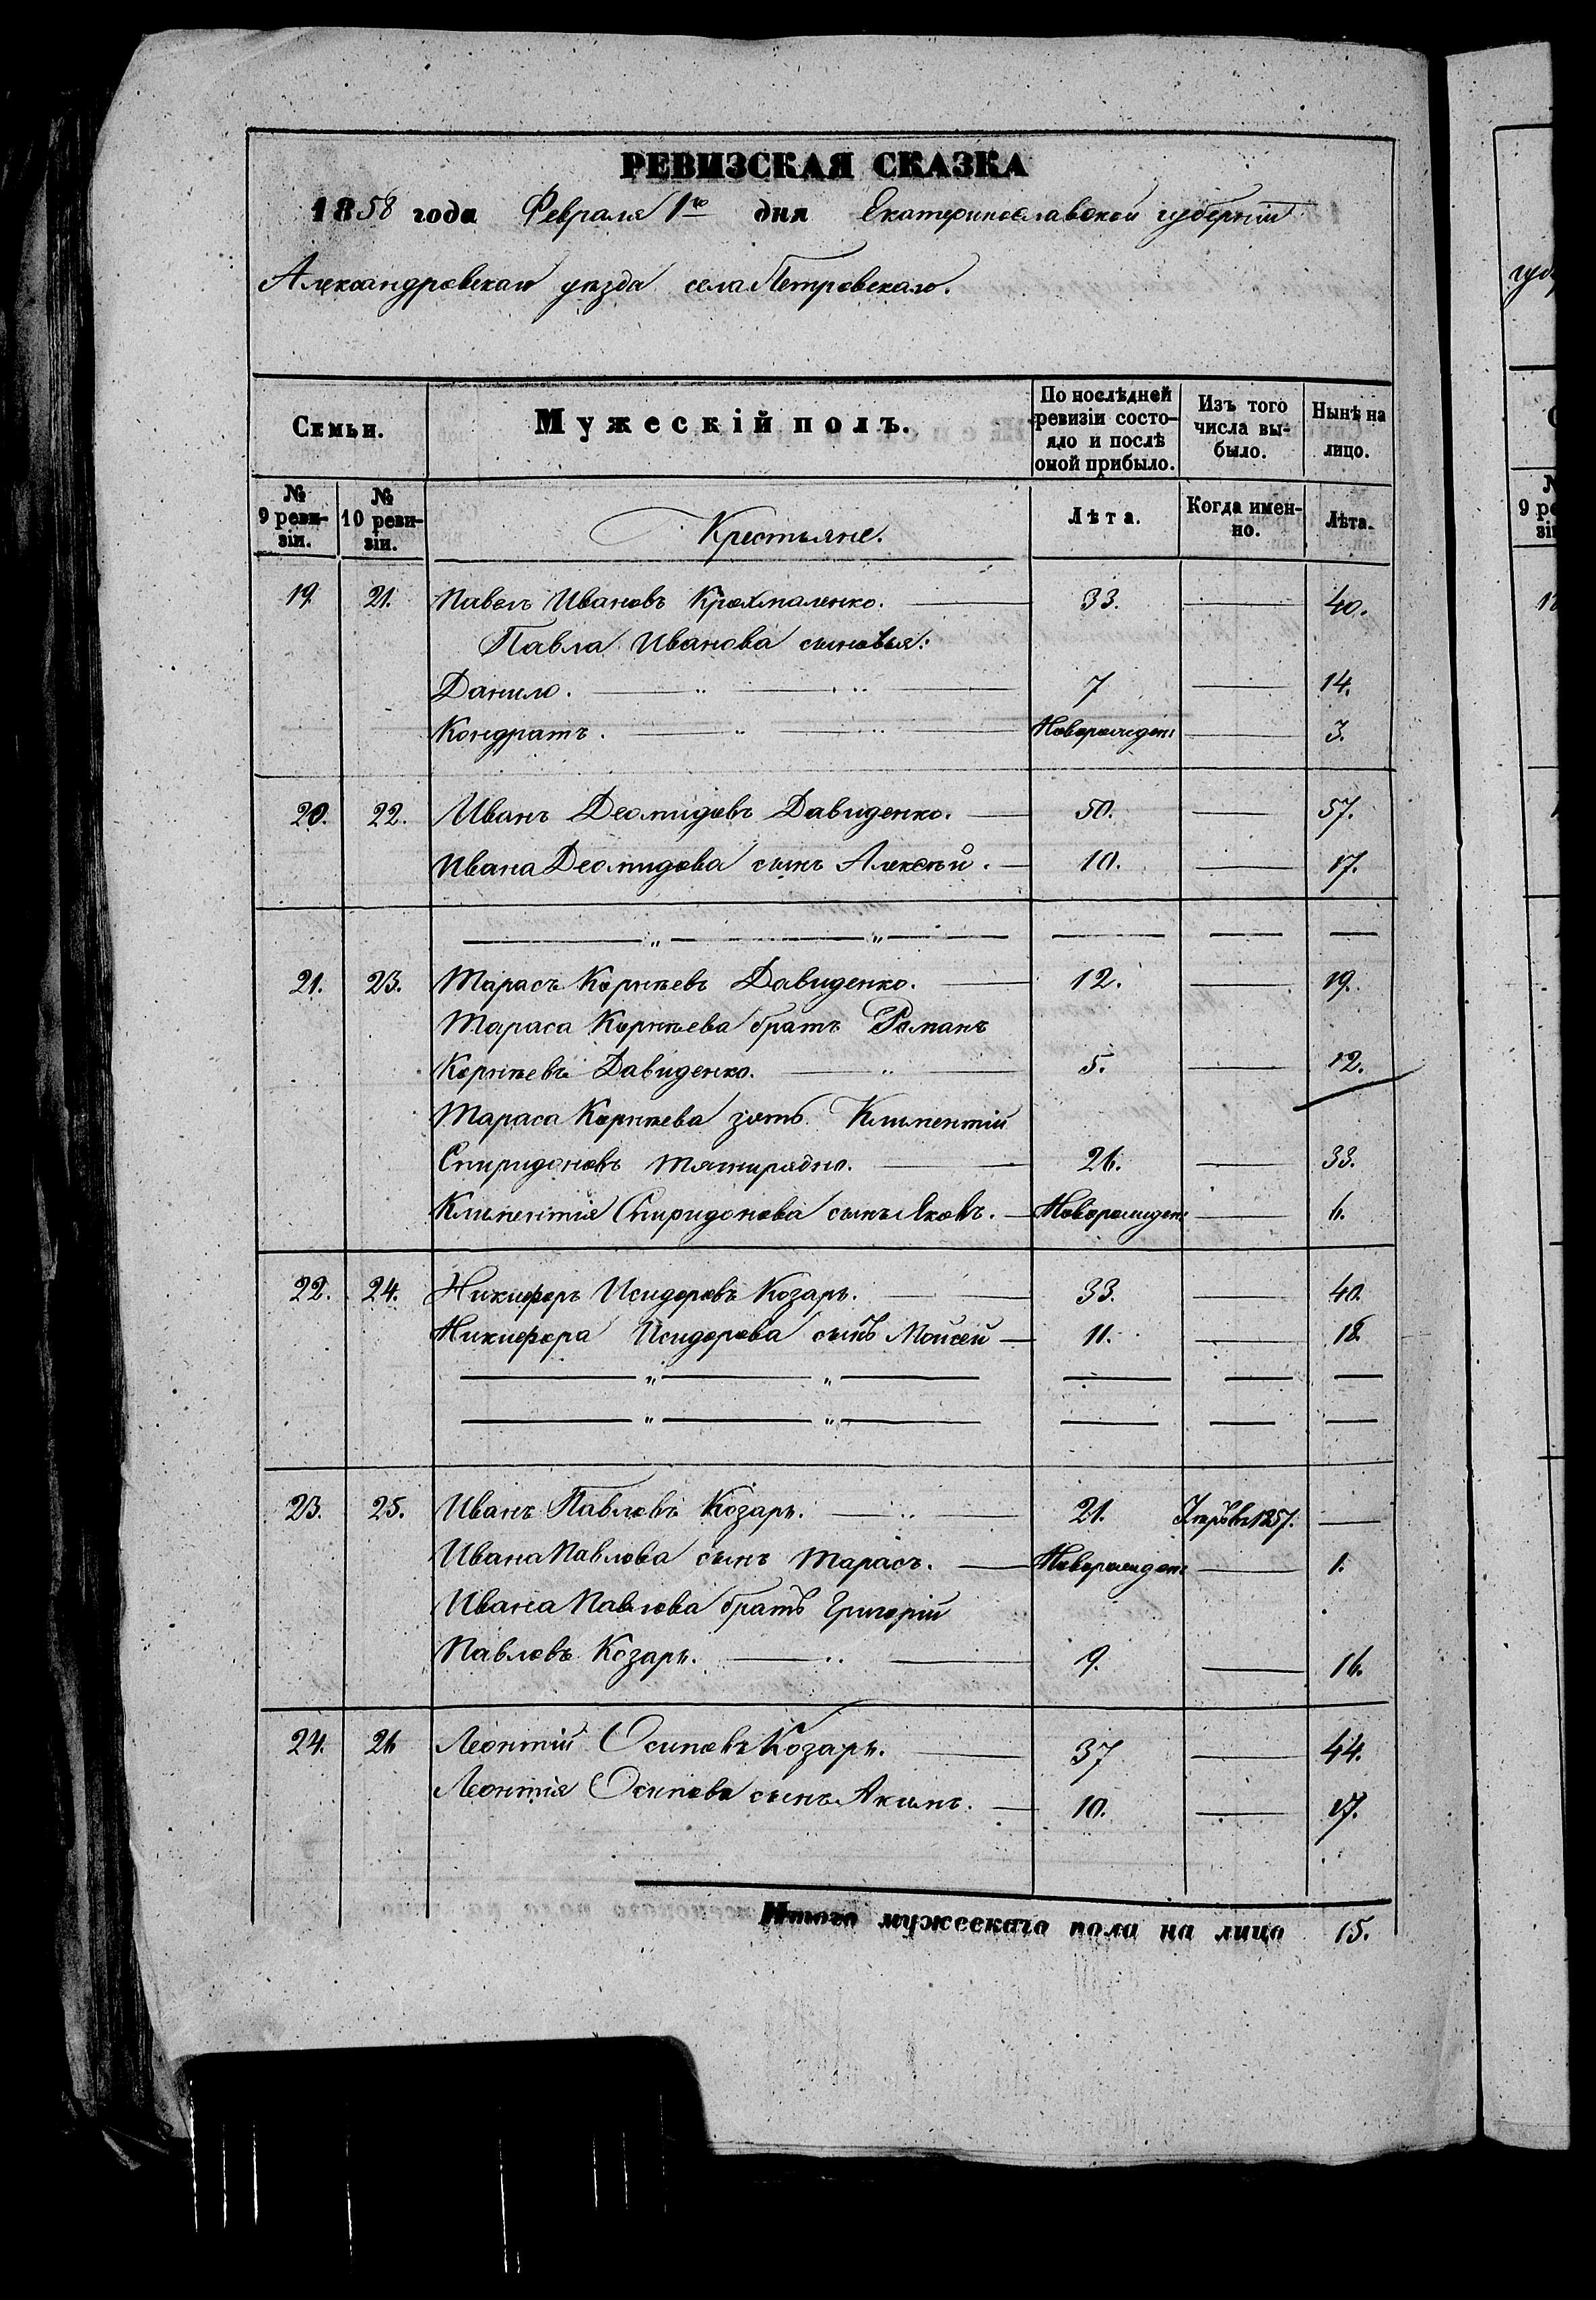 РЕВИЗСКАЯ СКАЗКА
1858 года Февраля 1го дня Екатеринославской губерніи
Александровскаго уѣзда села Петровскаго.
Семьи. Мужескій полъ. По послѣдней ревизіи состояло и послѣ оной прибыло. Изъ того числа выбыло. Нынѣ на лицо.
№ 9 ревизіи. № 10 ревизіи. Крестьяне. Лѣта. Когда именно. Лѣта.
19 21. Павелъ Ивановъ Крохмаленко. 33. 40.
Павла Иванова сыновья:
Данило. 7 14.
Кондратъ. Новорожден 3.
20. 22. Иванъ Деомидовъ Давиденко. 50. 57.
Ивана Деомидова сынъ Алексѣй. 10. 17.
21. 23. Тарасъ Корнѣевъ Давиденко. 12. 19.
Тараса Корнѣева братъ Романъ
Корнѣевъ Давиденко. 5. 12.
Тараса Корнѣева зять Климентій
Спиридоновъ Тягнирядно. 26. 33.
Климентія Спиридонова сынъ Яковъ. Новорожден 6.
22. 24. Никифоръ Исидоровъ Козарь. 33. 40.
Никифора Исидорова сынъ Мойсей 11. 18.
23. 25. Иванъ Павловъ Козарь. 21. 1857.
Ивана Павлова сынъ Тарасъ. Новорожден 1.
Ивана Павлова братъ Григорій
Павловъ Козарь. 9. 16.
24. 26 Леонтій Осиповъ Козарь. 37 44.
Леонтія Осипова сынъ Акимъ. 10. 17.
Итого мужескаго пола на лицо 15.